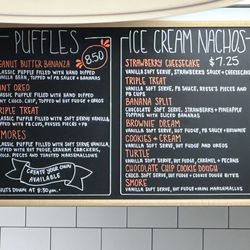 PUFFLES
8.50
PEANUT BUTTER BANANZA
CLASSIC PUFFLE WITH HAND DIPPED
VANILLA BEAN, TOPPED W/ PB SAUCE + BANANAS
MINT OREO
CLASSIC PUFFLE WITH HAND DIPPED
MINT CHOCO. CHIP, TOPPED W/ HOT FUDGE + OREOS
TRIPLE TREAT
CLASSIC PUFFLE WITH SOFT SERVE VANILLA,
TOPPED WITH PB CUPS, REESES PIECES + PB
SMORES
CLASSIC PUFFLE WITH SOFT SERVE VANILLA,
TOPPED WITH HOT FUDGE, GRAHAM CRACKERS,
PIECES AND TOASTED MARSHMALLOWS
CREATE YOUR OWN
AVAILABLE
DOWN AT 8:30 pm.
ICE CREAM NACHOS
STRAWBERRY CHEESECAKE $7.25
VANILLA SOFT SERVE, STRAWBERRY SAUCE + CHEESECAKE
TRIPLE TREAT
VANILLA SOFT SERVE, PB SAUCE, REESE'S PIECES AND
PB CUPS
BANANA SPLIT
CHOCOLATE SOFT SERVE, STRAWBERRIES + PINEAPPLE
TOPPED WITH SLICED BANANAS
BROWNIE DREAM
VANILLA SOFT SERVE, HOT FUDGE, PB SAUCE + BROWNIE
COOKIES + CREAM
VANILLA SOFT SERVE, HOT FUDGE AND OREOS
TURTLE
VANILLA SOFT SERVE, HOT FUDGE, CARAMEL + PECANS
CHOCOLATE CHIP COOKIE DOUGH
CHOC. SOFT SERVE, COOKIE + HOT FUDGE BITES
SMORE
SOFT SERVE, HOT FUDGE + MINI MARSHMALLOWS